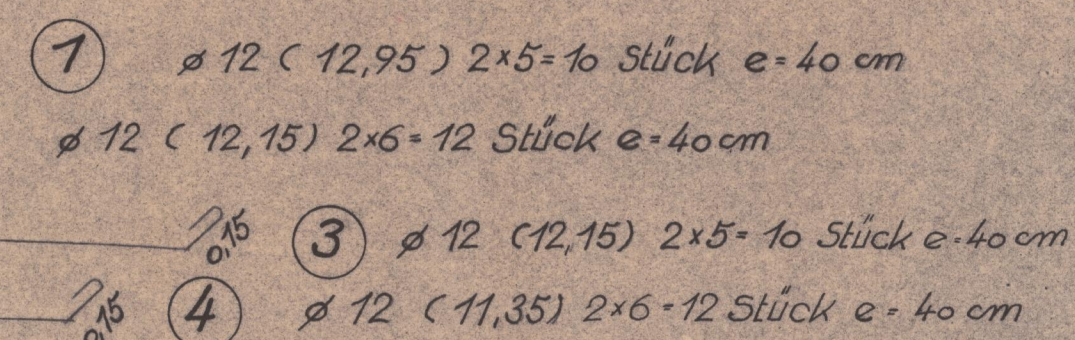 1 ø 12 ( 12,95 ) 2×5=10 Stück e=40 cm
ø 12 ( 12,15) 2×6=12 Stück e=40cm
0,15 3 ø 12 (12,15) 2×5= 10 Stück e=40 cm
0,15 4 ø 12 (11,35) 2×6=12 Stück e=40 cm